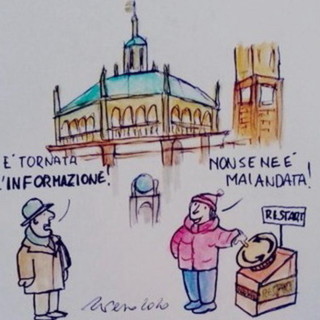 E' TORNATA
L'INFORMAZIONE!
NON SE NE E'
MAI ANDATA!
RESTART